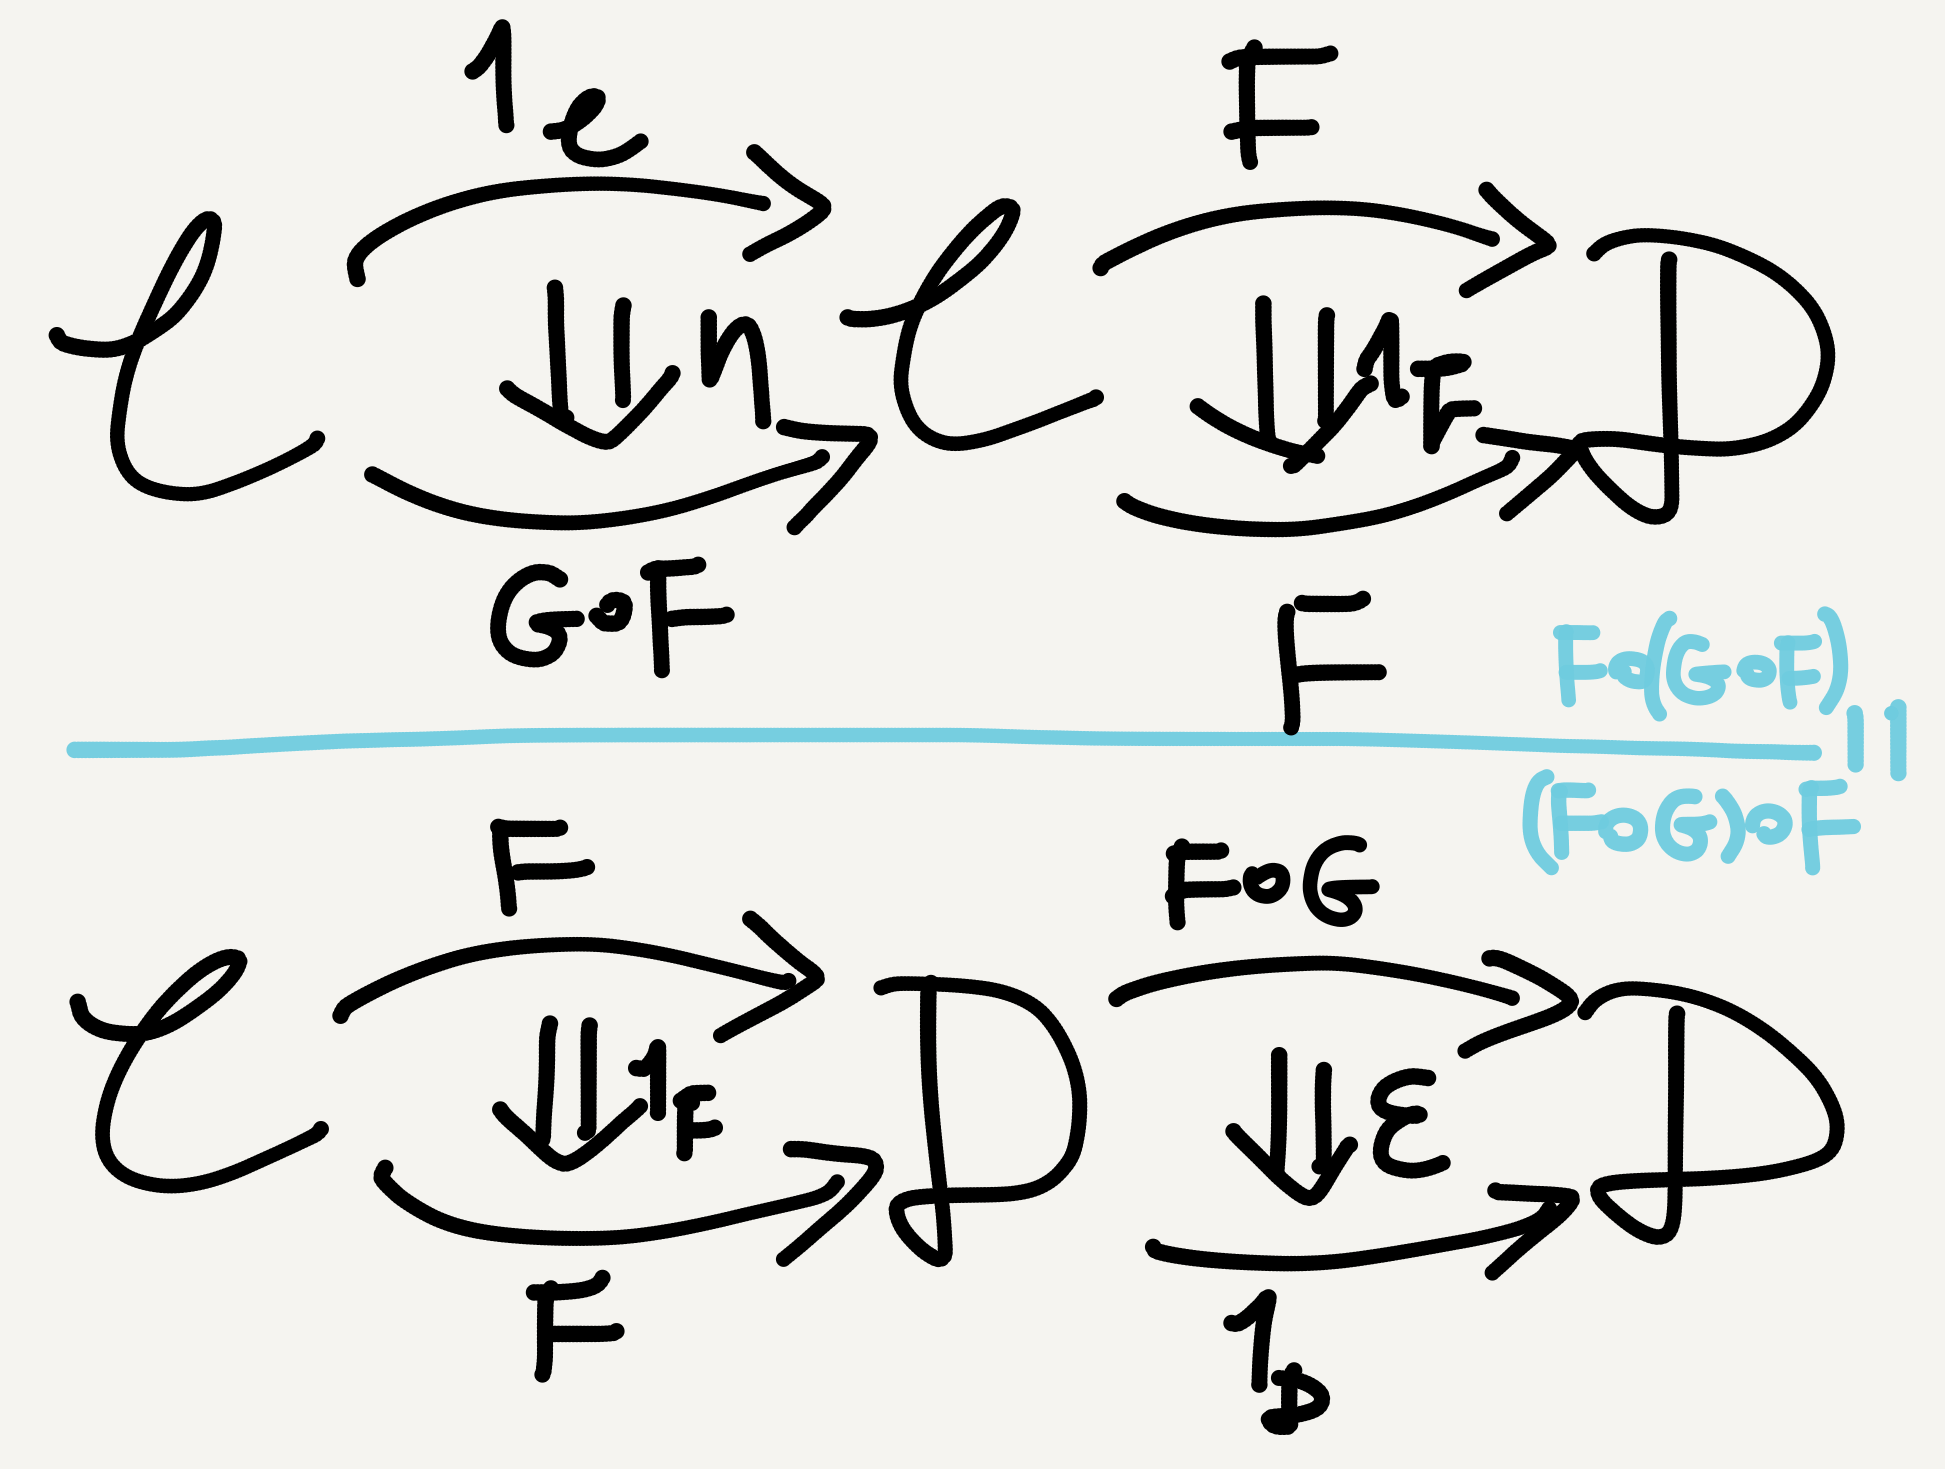 1_C F
C ⇓ η C ⇓ 1_F D
G∘F F
F∘(G∘F)
||
(F∘G)∘F
F F∘G
C ⇓ 1_F D ⇓ ε D
F 1_D